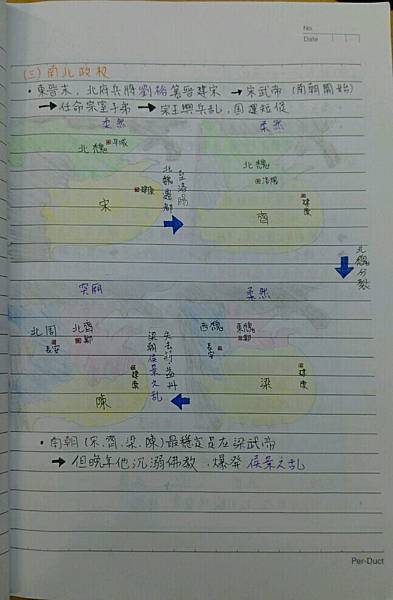 No.
Date
(三)南北政权
・東晉末，北府兵將劉裕篡晉建宋 → 宋武帝 (南朝開始)
→ 任命宗室子弟 → 宋王興兵乱，国運短促
柔然
北魏
平城
宋
建康
北魏遷都
至洛陽
柔然
北魏
洛陽
建康
齊
北魏分裂
突厥
北周
長安
北齊
鄴
建康
陳
梁朝侯景之乱
柔然
西魏
長安
東魏
鄴
建康
梁
・南朝(宋.齊.梁.陳)最穩定是在梁武帝
→ 但晚年他沉溺佛教，爆発侯景之乱
Per-Duct